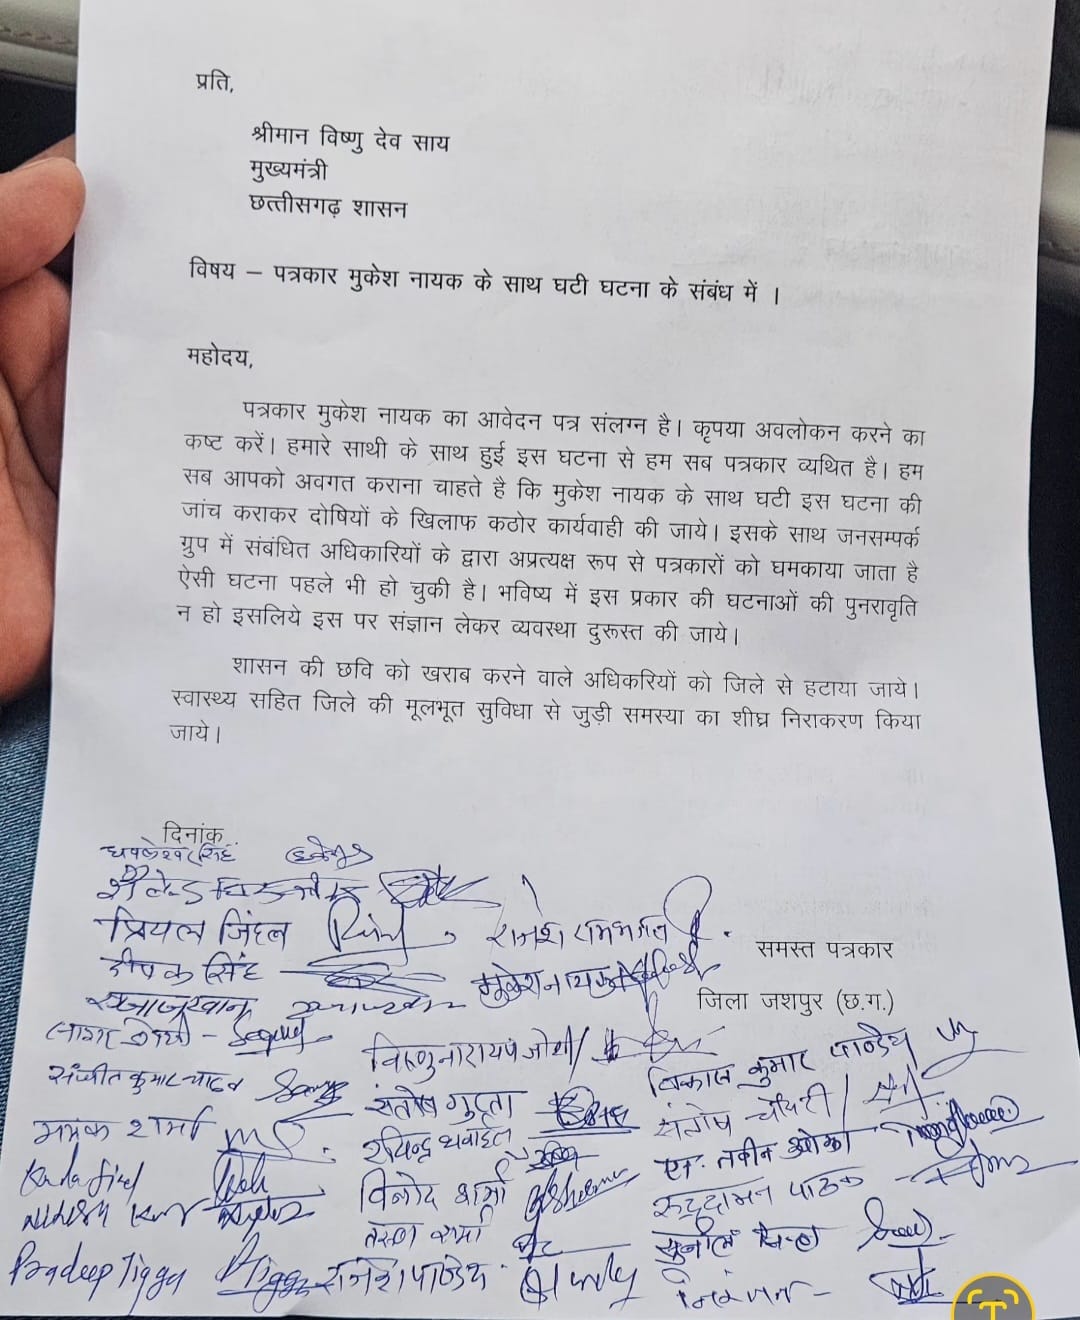 प्रति,
श्रीमान विष्णु देव साय
मुख्यमंत्री
छत्तीसगढ़ शासन
विषय – पत्रकार मुकेश नायक के साथ घटी घटना के संबंध में ।
महोदय,
पत्रकार मुकेश नायक का आवेदन पत्र संलग्न है। कृपया अवलोकन करने का
कष्ट करें। हमारे साथी के साथ हुई इस घटना से हम सब पत्रकार व्यथित है। हम
सब आपको अवगत कराना चाहते है कि मुकेश नायक के साथ घटी इस घटना की
जांच कराकर दोषियों के खिलाफ कठोर कार्यवाही की जाये। इसके साथ जनसम्पर्क
ग्रुप में संबंधित अधिकारियों के द्वारा अप्रत्यक्ष रूप से पत्रकारों को घमकाया जाता है
ऐसी घटना पहले भी हो चुकी है। भविष्य में इस प्रकार की घटनाओं की पुनरावृति
न हो इसलिये इस पर संज्ञान लेकर व्यवस्था दुरूस्त की जाये।
शासन की छवि को खराब करने वाले अधिकरियों को जिले से हटाया जाये।
स्वास्थ्य सहित जिले की मूलभूत सुविधा से जुड़ी समस्या का शीघ्र निराकरण किया
जाये।
दिनांक
सिंह
प्रियल जिंदल
समस्त पत्रकार
दीपक सिंह
मुकेश नायक
जिला जशपुर (छ.ग.)
विष्णुनारायण जोशी
विकास कुमार पाण्डेय
संजीत कुमार यादव
संतोष गुप्ता
संतोष चौधरी
मयंक शर्मा
रविन्द्र थवाईत
एन. नवीन ओझा
विनोद शर्मा
रूद्रदामन पाठक
शर्मा
सुनील सिन्हा
Pradeep Tigga
राजेश पाण्डेय
निरंजन